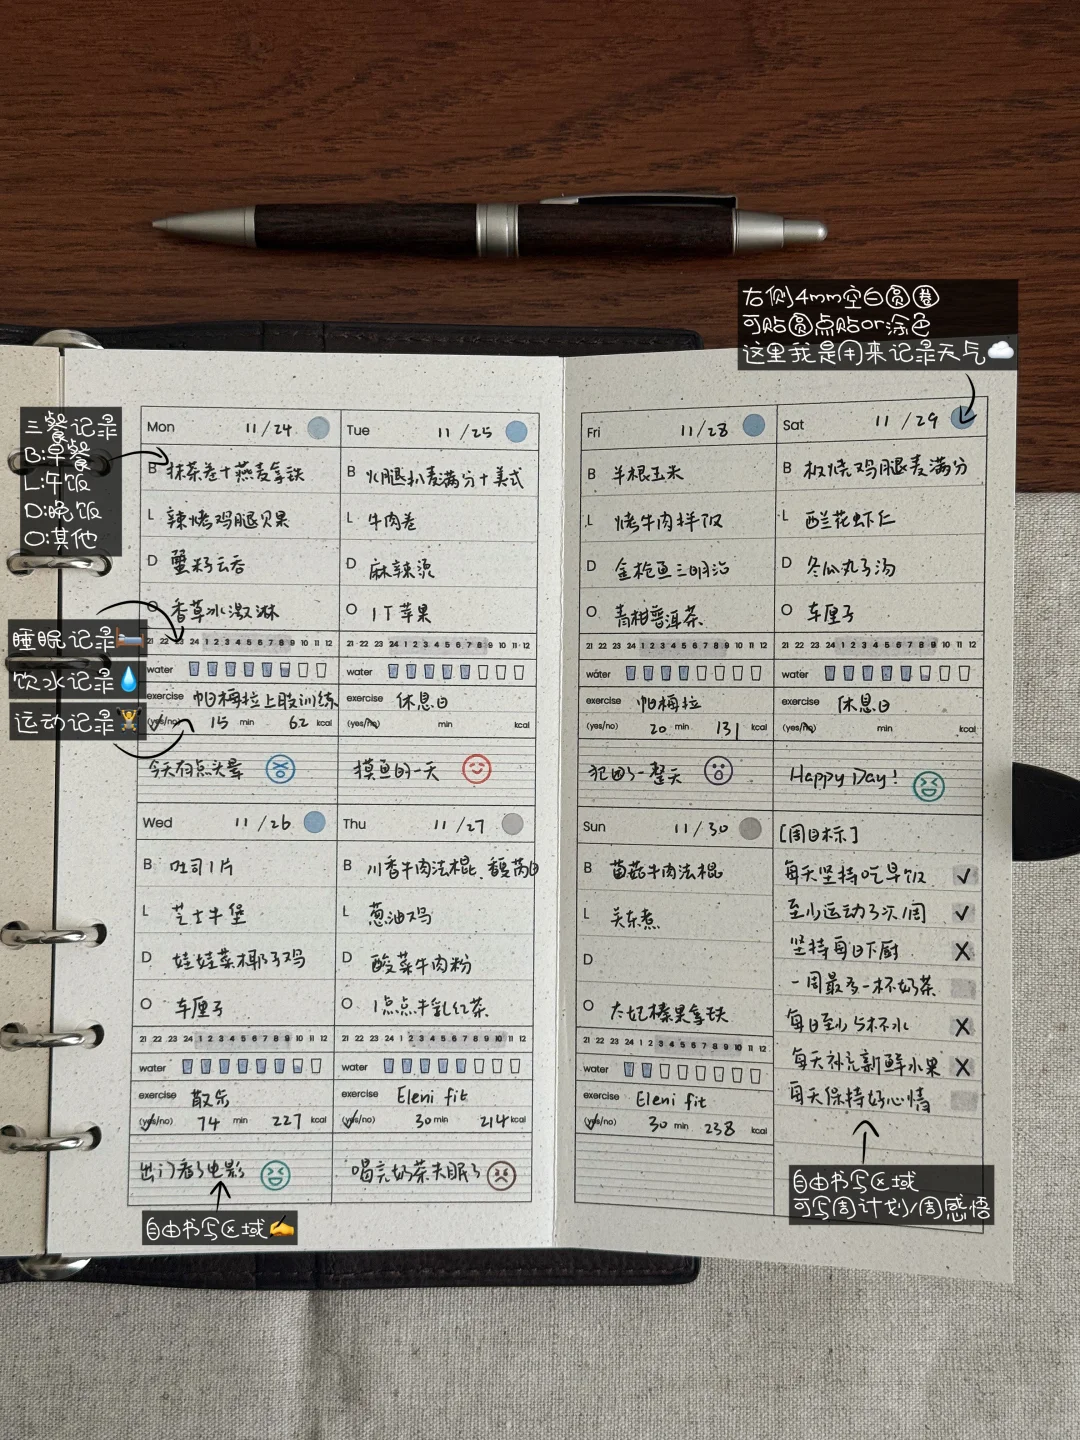 右侧4mm空白圆圈
可贴圆点贴or涂色
这里我是用来记录天气☁️
三餐记录
B:早餐
L:午饭
D:晚饭
O:其他
睡眠记录🛌
饮水记录💧
运动记录🏋️
Mon 11/24
B 抹茶卷+燕麦拿铁
L 辣烤鸡腿贝果
D 蟹籽云吞
O 香草冰激淋
21 22 23 24 1 2 3 4 5 6 7 8 9 10 11 12
water
exercise 帕梅拉上肢训练
(yes/no) 15 min 62 kcal
今天有点头晕
Tue 11/25
B 火腿扒麦满分+美式
L 牛肉卷
D 麻辣烫
O 1个苹果
21 22 23 24 1 2 3 4 5 6 7 8 9 10 11 12
water
exercise 休息日
(yes/no) min kcal
摸鱼的一天
Wed 11/26
B 吐司1片
L 芝士牛堡
D 娃娃菜椰子鸡
O 车厘子
21 22 23 24 1 2 3 4 5 6 7 8 9 10 11 12
water
exercise 散步
(yes/no) 74 min 227 kcal
出门看了电影
自由书写区域✍️
Thu 11/27
B 川香牛肉法棍、香芋
L 葱油鸡
D 酸菜牛肉粉
O 1点点牛乳红茶
21 22 23 24 1 2 3 4 5 6 7 8 9 10 11 12
water
exercise Eleni fit
(yes/no) 30 min 214 kcal
喝完奶茶失眠了
Fri 11/28
B 半根玉米
L 烤牛肉拌饭
D 金枪鱼三明治
O 青柑普洱茶
21 22 23 24 1 2 3 4 5 6 7 8 9 10 11 12
water
exercise 帕梅拉
(yes/no) 20 min 131 kcal
犯困了一整天
Sat 11/29
B 板烧鸡腿麦满分
L 西兰花虾仁
D 冬瓜丸子汤
O 车厘子
21 22 23 24 1 2 3 4 5 6 7 8 9 10 11 12
water
exercise 休息日
(yes/no) min kcal
Happy Day!
Sun 11/30
B 菌菇牛肉法棍
L 关东煮
D
O 太妃榛果拿铁
21 22 23 24 1 2 3 4 5 6 7 8 9 10 11 12
water
exercise Eleni fit
(yes/no) 30 min 238 kcal
[周目标]
每天坚持吃早饭 ✓
至少运动3次/周 ✓
坚持每日下厨 X
一周最多一杯奶茶
每日至少5杯水 X
每天补充新鲜水果 X
每天保持好心情
自由书写区域
可写周计划/周感悟